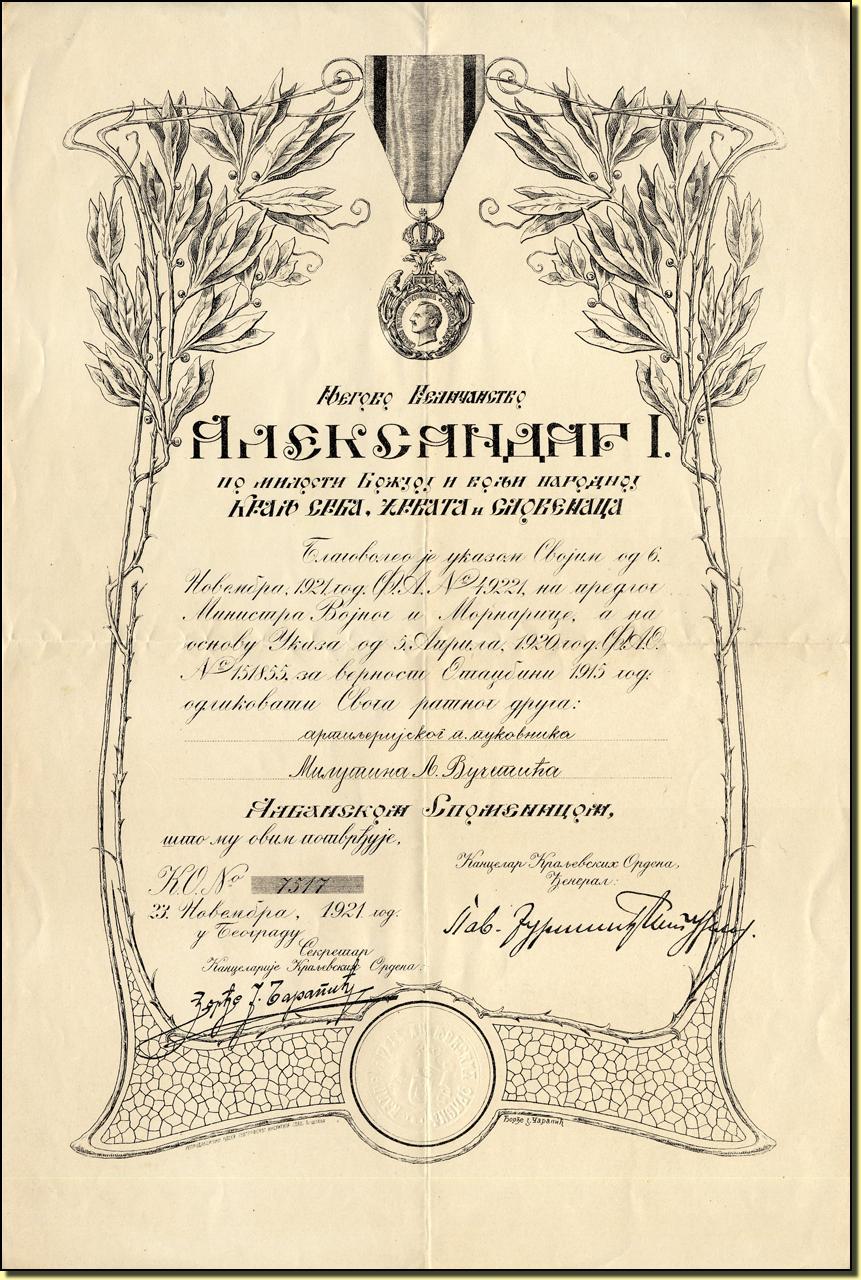 Његово Величанство
Александар I.
по милости Божјој и вољи народној
Краљ Срба, Хрвата и Словенаца
Благоволео је указом Својим од 6.
Новембра, 1921 год. Ф.А. № 49221, на предлог
Министра Војног и Морнарице, а на
основу Указа од 5. Априла, 1920 год. Ф.А.О.
№ 151855, за верност Отаџбини 1915 год.
одликовати Свога ратног друга:
артиљеријског п. пуковника
Милутина Л. Вучетића
Албанском Споменицом,
што му овим потврђује,
Канцелар Краљевских Ордена,
Ђенерал:
К.О. № 7517
23. Новембра, 1921 год.
у Београду
Секретар
Канцеларије Краљевских Ордена:
Пав. Јуришић Штурм.
Ђорђе J. Чарапић
Ђорђе J. Чарапић